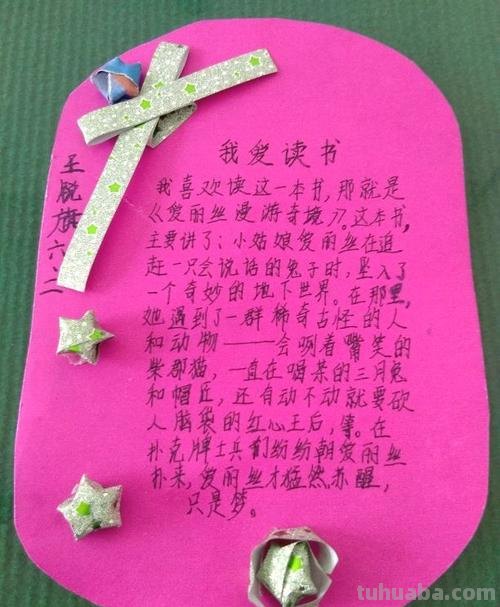 我爱读书
王脱旗六、二
我喜欢读这一本书,那就是
《爱丽丝漫游奇境》。这本书,
主要讲了:小姑娘爱丽丝在追
赶一只会说话的兔子时,坠入了
一个奇妙的地下世界。在那里,
她遇到了一群稀奇古怪的人
和动物——会咧着嘴笑的
柴郡猫,一直在喝茶的三月兔
和帽匠,还自动不动就要砍
人脑袋的红心王后,等。在
扑克牌士兵们纷纷朝爱丽丝
扑来,爱丽丝才猛然苏醒,
只是梦。
tuhuaba.com